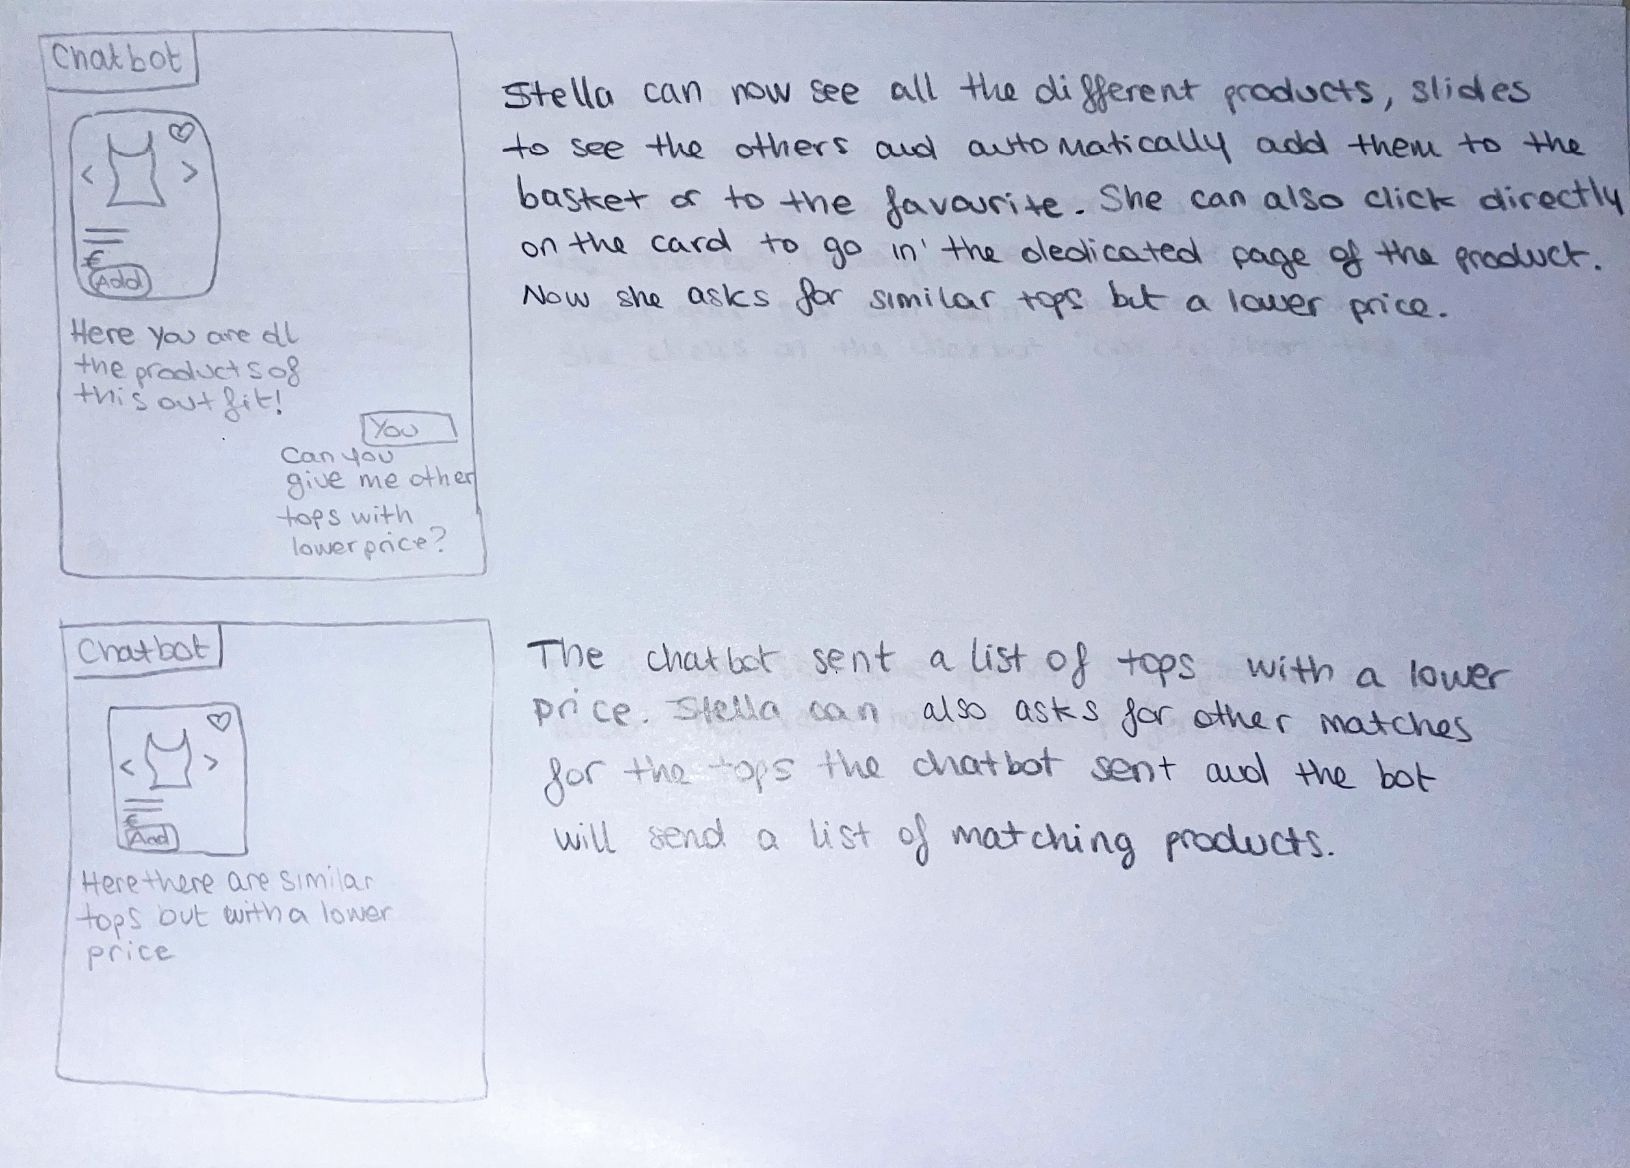 Chatbot
< >
€
Add
Here you are all
the products of
this outfit!
You
Can you
give me other
tops with
lower price?
Stella can now see all the different products, slides
to see the others and automatically add them to the
basket or to the favourite. She can also click directly
on the card to go in' the dedicated page of the product.
Now she asks for similar tops but a lower price.
Chatbot
< >
€
Add
Here there are similar
tops but with a lower
price
The chatbot sent a list of tops with a lower
price. Stella can also asks for other matches
for the tops the chatbot sent and the bot
will send a list of matching products.